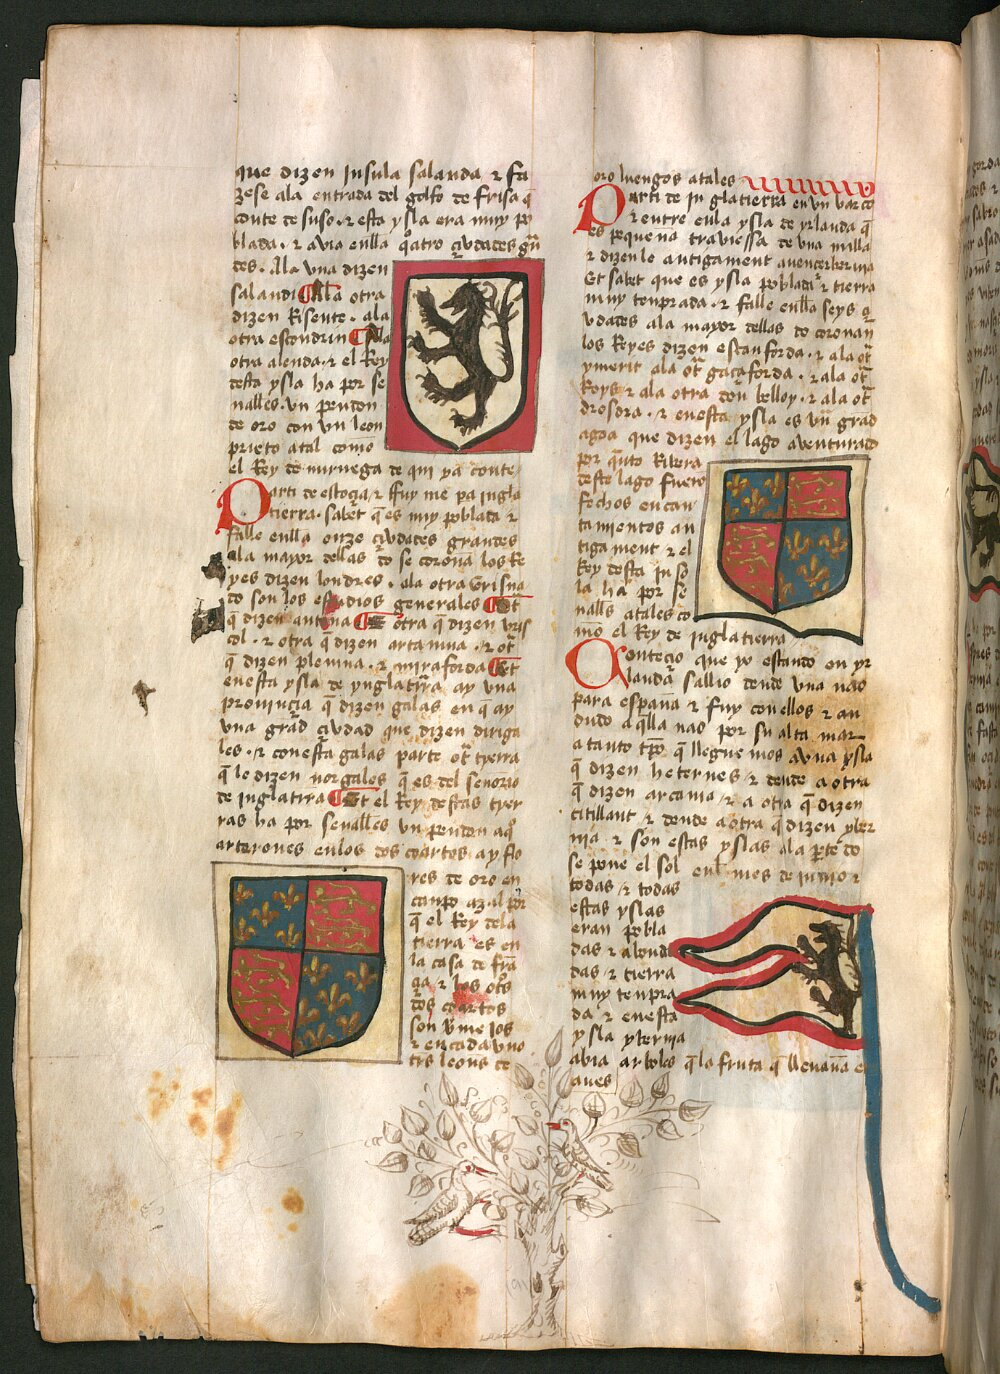 que dizen Insula salanda ⁊ fa
zese ala entrada del golfo de frisa q̄
conte de suso ⁊ esta ysla era muy po
blada ⁊ avia enlla q̊atro çiudades gr̄a
des. Ala una dizen
salandi ¶ Ala otra
dizen Risente. ala
otra escondrin ¶ Ala
otra alenda. ⁊ el Rey
desta ysla ha por se
nalles. un pendon
de oro con un leon
prieto atal como
el Rey de nuruega de qui ya conte
Parti de escoçia ⁊ ffuy me pa ingla
tierra. sabet q̄ es muy poblada ⁊
falle enlla onze çiudades grandes
ala mayor dellas do se corona los Re
yes dizen londres. ala otra
do son los estudios generales ¶ Et
q̄ dizen antona ¶ Et otra q̄ dizen bris
tol. ⁊ otra q̄ dizen artamua. ⁊ ot̄
q̄ dizen plemua. ⁊ miraforda ¶ Et
enesta ysla de ynglatir̄a ay una
prouinçia q̄ dizen galas en q̄ ay
una grād çiudad que dizen diriga
les. ⁊ con esta galas parte ot̄ tierra
q̄ le dizen norgales q̄ es del señorio
de inglatir̄ra ¶ Et el Rey destas tyer
ras ha por señalles un pendon aq̊
arterones enlos dos coartos ay flo
res de oro en
canpo azul por
q̄ el Rey dela
tierra es en
la casa de frā
çia ⁊ los ot̊s
dos coartos
son ūmeios
⁊ en cada uno
trs leons de
oro luengos atales
Parti de Inglatierra en un varco
⁊ entre enla ysla de yrlanda q̄
es pequeña traviessa de una milla
⁊ dizenle antigament
Et sabet que es ysla poblada ⁊ tierra
muy tenprada. ⁊ falle enlla seys çi
udades ala mayor dellas do coronan
los Reyes dizen estanforda. ⁊ ala ot̄
ymerit ala ot̄ gataforda. ⁊ ala ot̄
Roys ⁊ ala otra
drosdra. ⁊ enesta ysla es un grād
agoa que dizen el lago aventurado
por q̄nto Ribera
deste lago fuero
fechos encan
tamientos an
tiga ment ⁊ el
Rey desta Inso
la ha por se
nalls atales co
mo el Rey de inglatierra
Conteçio que yo estando en yr
landa sallio dende una nao
para españa ⁊ fuy conellos ⁊ an
dudo aq̄lla nao por su alta mar
atanto tp̄o q̄ llegue mos auna ysla
q̄ dizen heternes ⁊ dende a otra
q̄ dizen arcania ⁊ a otra q̄ dizen
citillant ⁊ dende a otra q̄ dizen yber
nia. ⁊ son estas yslas ala parte do
se pone el sol enl mes de junio ⁊
todas ⁊ todas
estas yslas
eran pobla
das ⁊ abonda
das ⁊ tierra
muy tenpra
da ⁊ enesta
ysla ybernia
abia arboles q̄ la fruta q̄ lleuaua e
aues